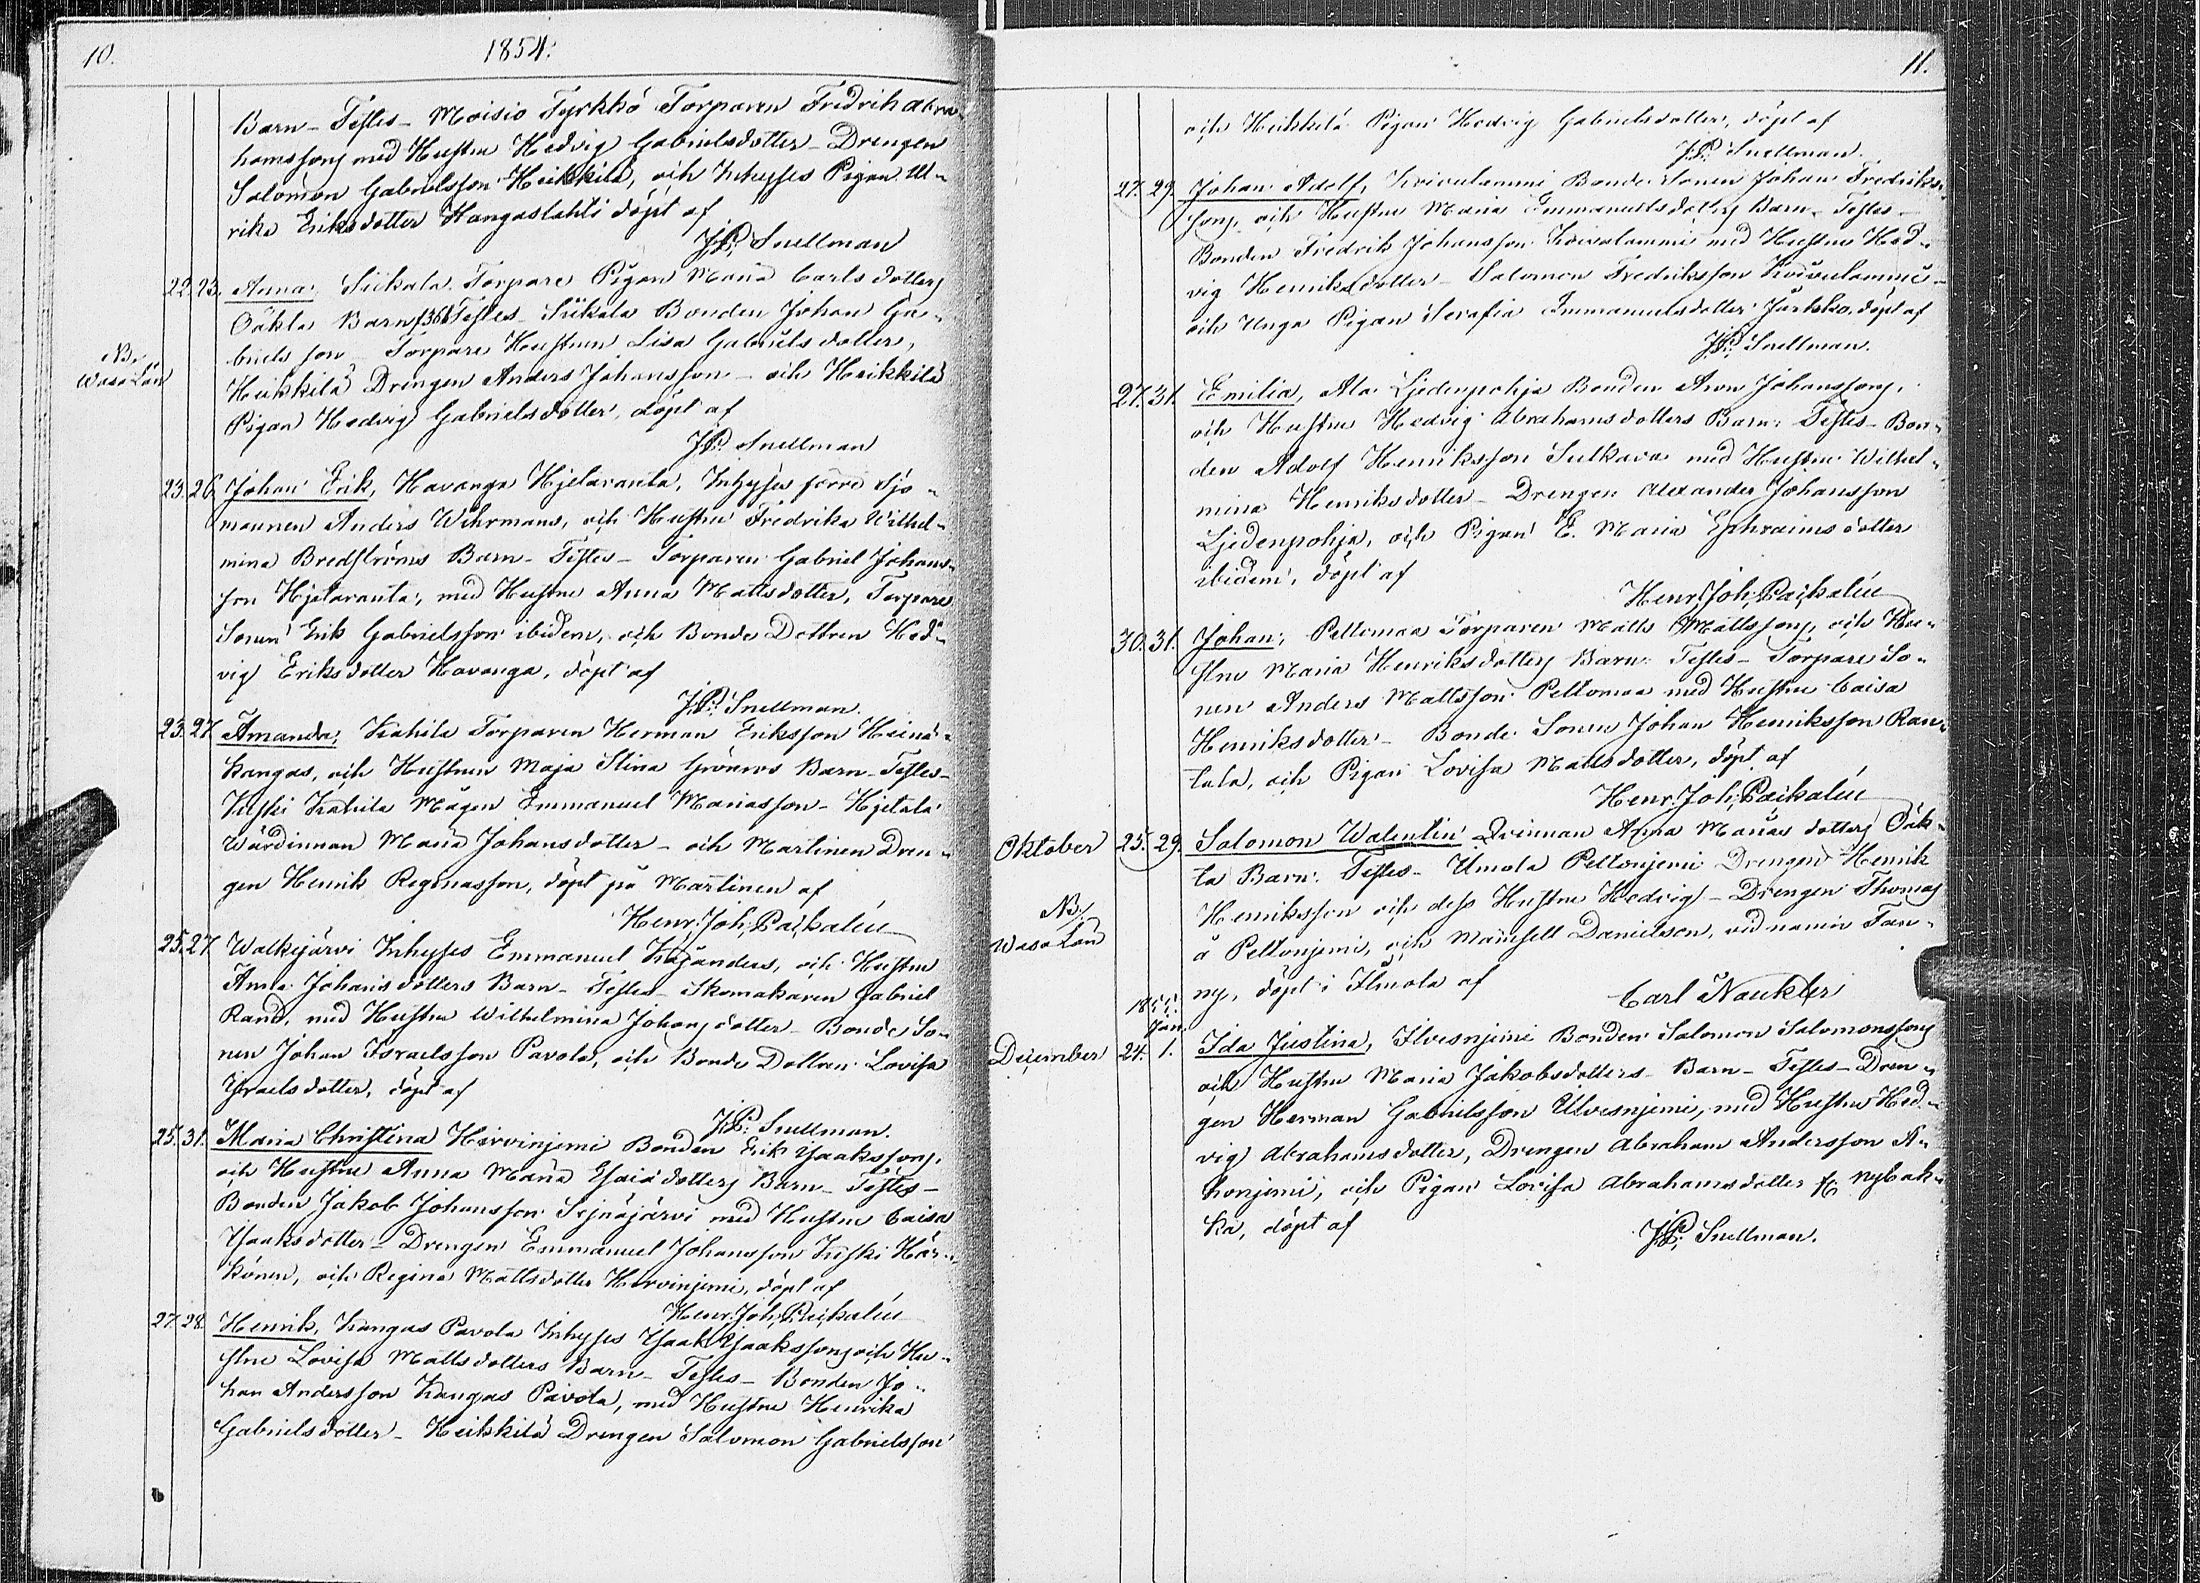 10.
1854.
Barn - Testes - Moisio Tyrkkö Torparen Fredrik Abra-
hamssons med Hustru Hedvig Gabrielsdotter - Drengen
Salomon Gabrielsson Heikkilä, och Inhyses Pigan Ul-
rika Eriksdotter Kangaslahti döpt af
J.P. Snellman
22. 23. Anna, Siikala Torpare Pigan Maria Carlsdotters
Oäkta Barn Testes - Siikala Bonden Johan Ga-
brielsson - Torpare Hustrun Lisa Gabrielsdotter,
NB.
Wasa Län
Heikkilä Drengen Anders Johansson - och Heikkilä
Pigan Hedvig Gabrielsdotter, döpt af
J.P. Snellman
23. 26. Johan Erik, Havanga Hjelaranta, Inhyses förre Sjö-
mannen Anders Wihrmans, och Hustru Fredrika Wilhel-
mina Bredströms Barn - Testes - Torparen Gabriel Johans-
son Hjelaranta, med Hustru Anna Mattsdotter, Torpare
Sonen Erik Gabrielsson ibidem, och Bonde Dottren Hed-
vig Eriksdotter Havanga, döpt af
J.P. Snellman.
23. 27. Amanda, Kahila Torparen Herman Eriksson Heinä-
kangas, och Hustrun Maja Stina Grönroos Barn - Testes -
Kuski Kahila Mågen Emmanuel Mariasson - Hjetala
Wärdinnan Maria Johansdotter - och Martinen Dren-
gen Henrik Reginasson, döpt på Martinen af
Henr. Joh. Paikalén
25. 27. Walkejärvi Inhyses Emmanuel Kajanders, och Hustru
Anna Johansdotters Barn - Testes - Skomakaren Gabriel
Rand, med Hustru Wilhelmina Johansdotter - Bonde So-
nen Johan Israelsson Pavola, och Bonde Dottren Lovisa
Israelsdotter, döpt af
J.P. Snellman.
25. 31. Maria Christina Hirvinjemi Bonden Erik Isaakssons,
och Hustru Anna Maria Esaiædotters Barn - Testes -
Bonden Jakob Johansson Sejnäjärvi med Hustru Caisa
Isaaksdotter - Drengen Emmanuel Johansson Kuski Här-
könen, och Regina Mattsdotter Hirvinjemi, döpt af
Henr. Joh. Paikalén
27. 28. Henrik, Kangas Pavola Inhyses Isaak Isaakssons och Hu-
stru Lovisa Mattsdotters Barn - Testes - Bonden Jo-
han Andersson Kangas Pavola, med Hustru Henrika
Gabrielsdotter - Heikkilä Drengen Salomon Gabrielsson
11.
och Heikkilä Pigan Hedvig Gabrielsdotter, döpt af
J.P. Snellman.
27. 29. Johan Adolf, Koivulammi Bonde Sonen Johan Fredriks-
sons, och Hustru Maria Emmanuelsdotters Barn - Testes -
Bonden Fredrik Johansson Koivulammi med Hustru Hed-
vig Henriksdotter - Salomon Fredriksson Koivulammi -
och Unga Pigan Serafia Emmanuelsdotter Jurkko, döpt af
J.P. Snellman.
27. 31. Emilia, Ala Ljedenpohja Bonden Aron Johanssons,
och Hustru Hedvig Abrahamsdotters Barn: Testes - Bon-
den Adolf Henriksson Sulkava med Hustru Wilhel-
mina Henriksdotter - Drengen Alexander Johansson
Ljedenpohja, och Pigan E. Maria Ephraimsdotter
ibidem, döpt af
Henr. Joh. Paikalén
30. 31. Johan, Peltomaa Torparen Matts Mattssons, och Hu-
stru Maria Henriksdotters Barn: Testes - Torpare So-
nen Anders Mattsson Peltomaa med Hustru Caisa
Henriksdotter - Bonde Sonen Johan Henriksson Ran-
tala, och Pigan Lovisa Mattsdotter, döpt af
Henr. Joh. Paikalén
Oktober 25. 29. Salomon Walentin Qvinnan Anna Mariasdotters Oäk-
ta Barn: Testes - Ilmola Peltonjemi Drengen Henrik
Henriksson och dess Hustru Hedvig - Drengen Thomas
NB.
Wasa Län
å Peltonjemi, och Mamsell Danielson, vid namn Fan-
ny, döpt i Ilmola af
Carl Nauklér
1855.
Jan.
December 24. 1. Ida Justina, Ilvesnjemi Bonden Salomon Salomonssons
och Hustru Maria Jakobsdotters Barn - Testes - Dren-
gen Herman Gabrielsson Ulvesnjemi, med Hustru Hed-
vig Abrahamsdotter, Drengen Abraham Andersson A-
honjemi, och Pigan Lovisa Abrahamsdotter Nybak-
ka, döpt af
J.P. Snellman.